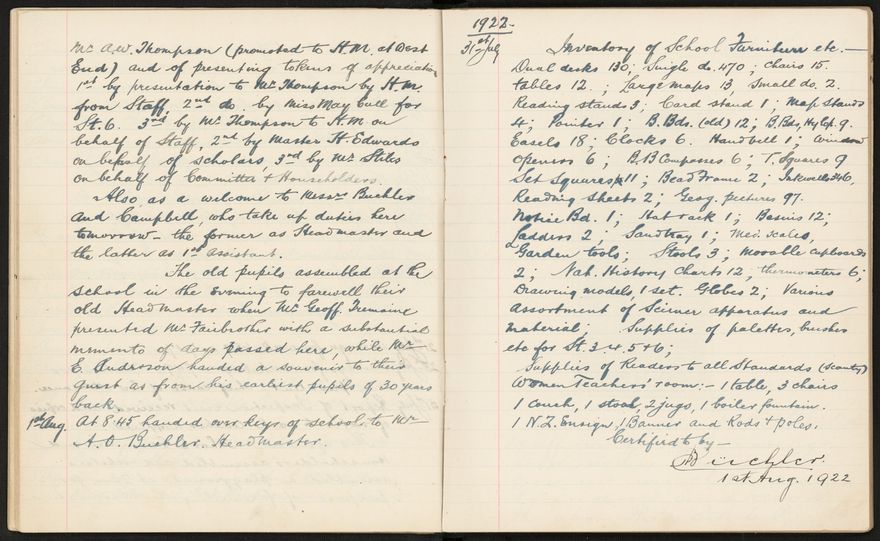 Mr A.W. Thompson (promoted to H.M. at West
End) and of presenting tokens of appreciation
1st by presentation to Mr Thompson by H.M.
from Staff, 2nd do. by Miss May Cull for
St. 6. 3rd by Mr Thompson to H.M on
behalf of Staff, 2nd by Master H. Edwards
on behalf of scholars, 3rd by Mr Stiles
on behalf of Committee & Householders.
Also, as a welcome to Messrs Buchler
and Campbell, who take up duties here
tomorrow - the former as Headmaster and
the latter as 1st assistant.
The old pupils assembled at the
school in the evening to farewell their
old Headmaster when Mr Geoff. Tremaine
presented Mr Fairbrother with a substantial
memento of days passed here, while Mr
E. Anderson handed a souvenir to their
guest as from his earliest pupils of 30 years
back.
1st Aug. At 8.45 handed over keys of school to Mr
A. O. Buchler, Headmaster.
1922
31st July Inventory of School Furniture etc.
Dual desks 130; Single do. 470; Chairs 15.
Tables 12.; Large maps 13, Small do. 2.
Reading stands 3; Card stand 1; Map Stands
4; Pointer 1; B.Bds. (old) 12; B.Bds, Hylop. 9.
Easels 18; Clocks 6. Handbell 1; window
openers 6; B.B Compasses 6; T. Squares 9
Set Squares 11; Bead Frame 2; Inkwells 346,
Reading Sheets 2; Geog. pictures 97.
Notice Bd. 1; Hat rack 1; Basins 12;
Ladders 2; Sandtray 1; Med. scales,
Garden tools; Stools 3; movable cupboards
2; Nat. History Charts 12; thermometers 6;
Drawing models, 1 set. Globes 2; Various
assortment of Science apparatus and
material; Supplies of palettes, brushes
etc for St. 3.4.5+6;
Supplies of Readers to all Standards (scanty)
Women Teachers' room:- 1 table, 3 chairs
1 couch, 1 stool, 2 jugs, 1 boiler fountain.
1 N.Z. Ensign, 1 Banner and Rods & poles.
Certified to by -
AO Büchler.
1st Aug. 1922